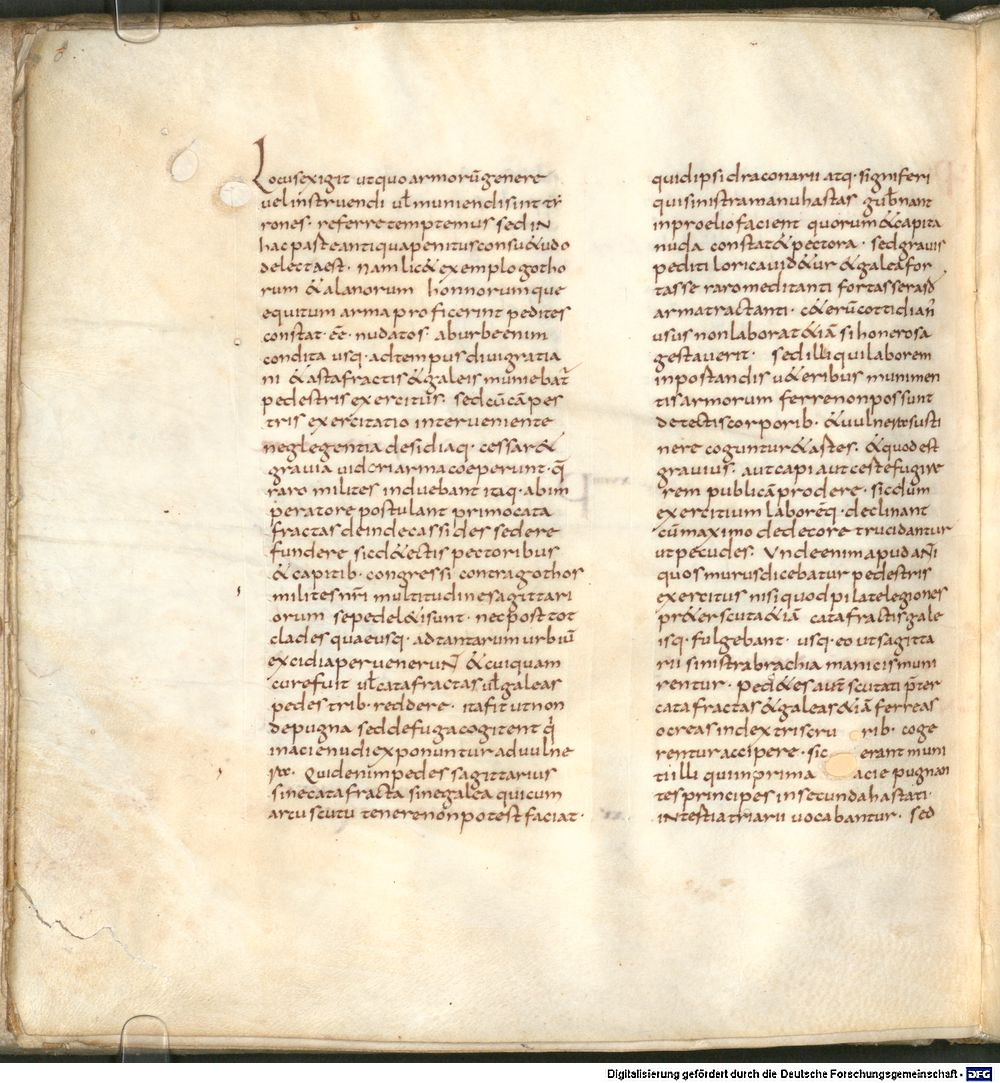 Locus exigit ut quo armorū genere
vel instruendi ut̄ muniendi sint tȳ
rones · referre temptemus sed in
hac paste antiqua penitus consu&udo
delecta est · nam lic& exemplo gotho
rum & alanorum honnorumque
equitum arma proficerint pedites
constat · ēē · nudatos · ab urbe enim
condita usq · ad tempus divi gratia
ni & astafractis & galeis muniebat̄
pedestris exercitus · sed cū cāpes
tris exercitatio interveniente
neglegentia desidiaq · cessar&
gravia videri arma coeperunt · q̄
raro milites induebant itaq · ab im
peratore postulant primo cata
fractas deinde cassides sedere
fundere sic d&ectis pectoribus
& capitib · congressi contra gothos
milites nr̄i multitudine sagittari
orum sepe del&i sunt · nec post tot
clades quae usq · ad tantarum urbiū
excidia pervenerunt & cuiquam
cure fuit ut̄ catafractas ut̄ galeas
pedestrib · reddere · ita fit ut non
de pugna sed de fuga cogitent q̄
in acie nudi exponuntur ad vulne
ra · Quid enim pedes sagittarius
sine catafracta sine galea qui cum
artu scutu tenere non potest faciat ·
quid ipsi draconarii atq · signiferi
qui sinistra manu hastas gub̄nant
in proelio facient quorum & capita
nuda constat & pectora · sed gravis
pediti lorica vid&ur & galea for
tasse raro meditanti fortasse raro
arma tractanti · c&erū cottidian̄
usus non laborat &iā si honerosa
gestaverit · sed illi qui laborem
in postandis v&eribus munimen
tis armorum ferre non possunt
detectis corporib · & vulnera susti
nere coguntur & astes · & quod est
gravius · aut capi aut ceste fugire
rem publicā prodere · sic dum
exercitium laborēq · declinant
cū maximo dedetore trucidantur
ut pecudes · Unde enim apud an̄i
quos murus dicebatur pedestris
exercitus nisi quod pilate legiones
pr&er scuta &iā catafractis gale
isq · fulgebant · usq · eo ut sagitta
rii sinistra brachia manicis muni
rentur · pedi&es aut̄ scutati p̄ter
catafractas & galeas &iā ferreas
ocreas in dextris cru rib · coge
rentur accipere · sic erant muni
ti illi qui in prima acie pugnan
tes principes in secunda hastati ·
in testia triarii vocabantur · sed
Digitalisierung gefördert durch die Deutsche Forschungsgemeinschaft - DFG